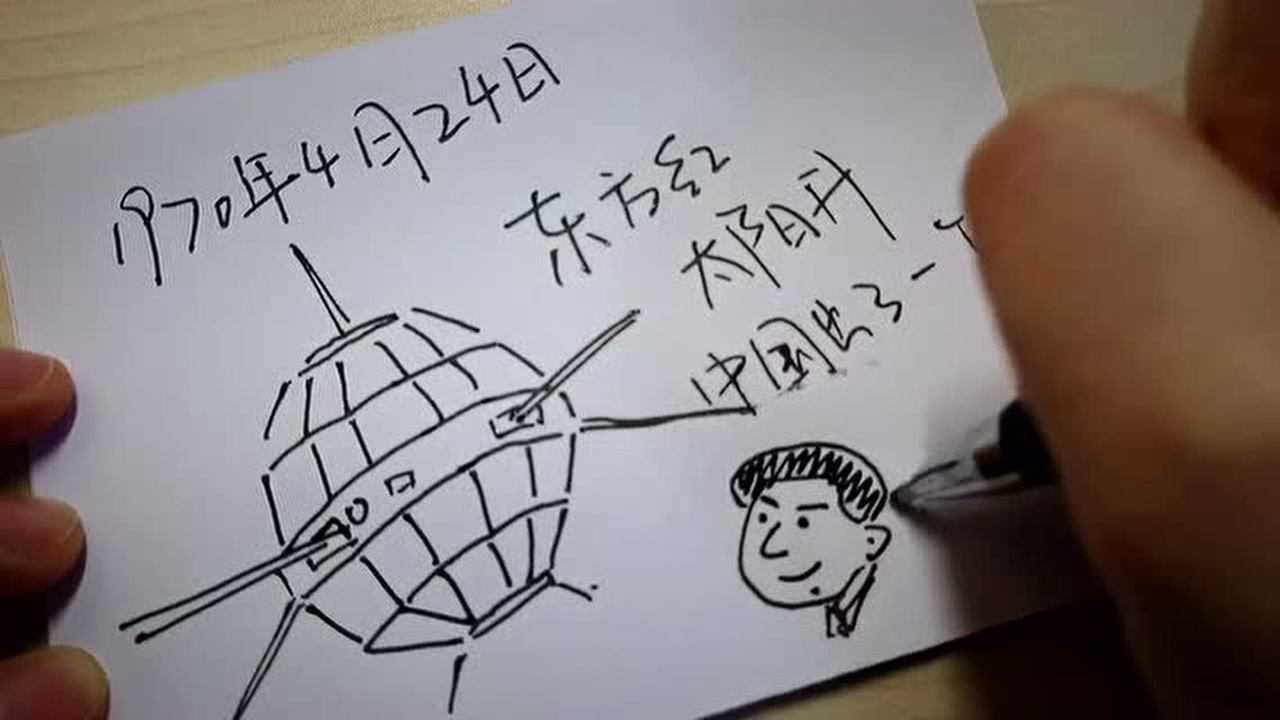 1970年4月24日
东方红
太阳升
中国出了一